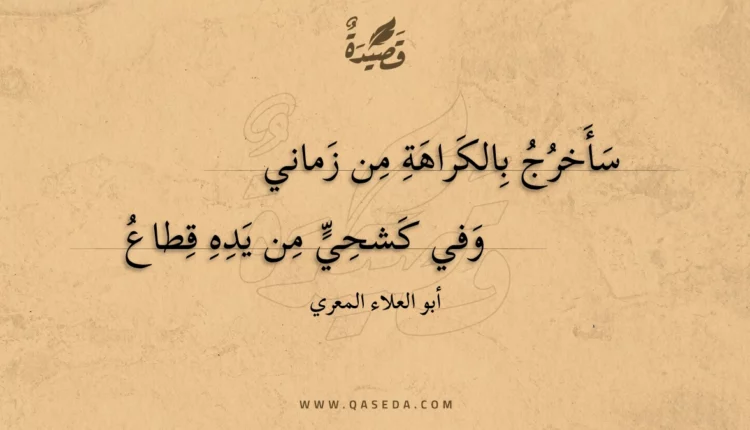 قَصِيدَةٌ
سَأَخرُجُ بِالكَراهَةِ مِن زَماني
وَفي كَشحِيٍّ مِن يَدِهِ قِطاعُ
أبو العلاء المعري
WWW.QASEDA.COM